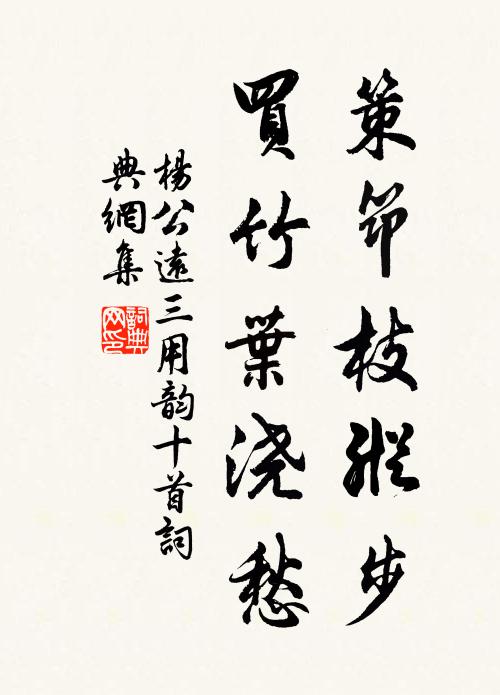 策筇枝縱步
買竹葉浇愁
楊公遠三用韵十首詞
典網集
詞典
网印